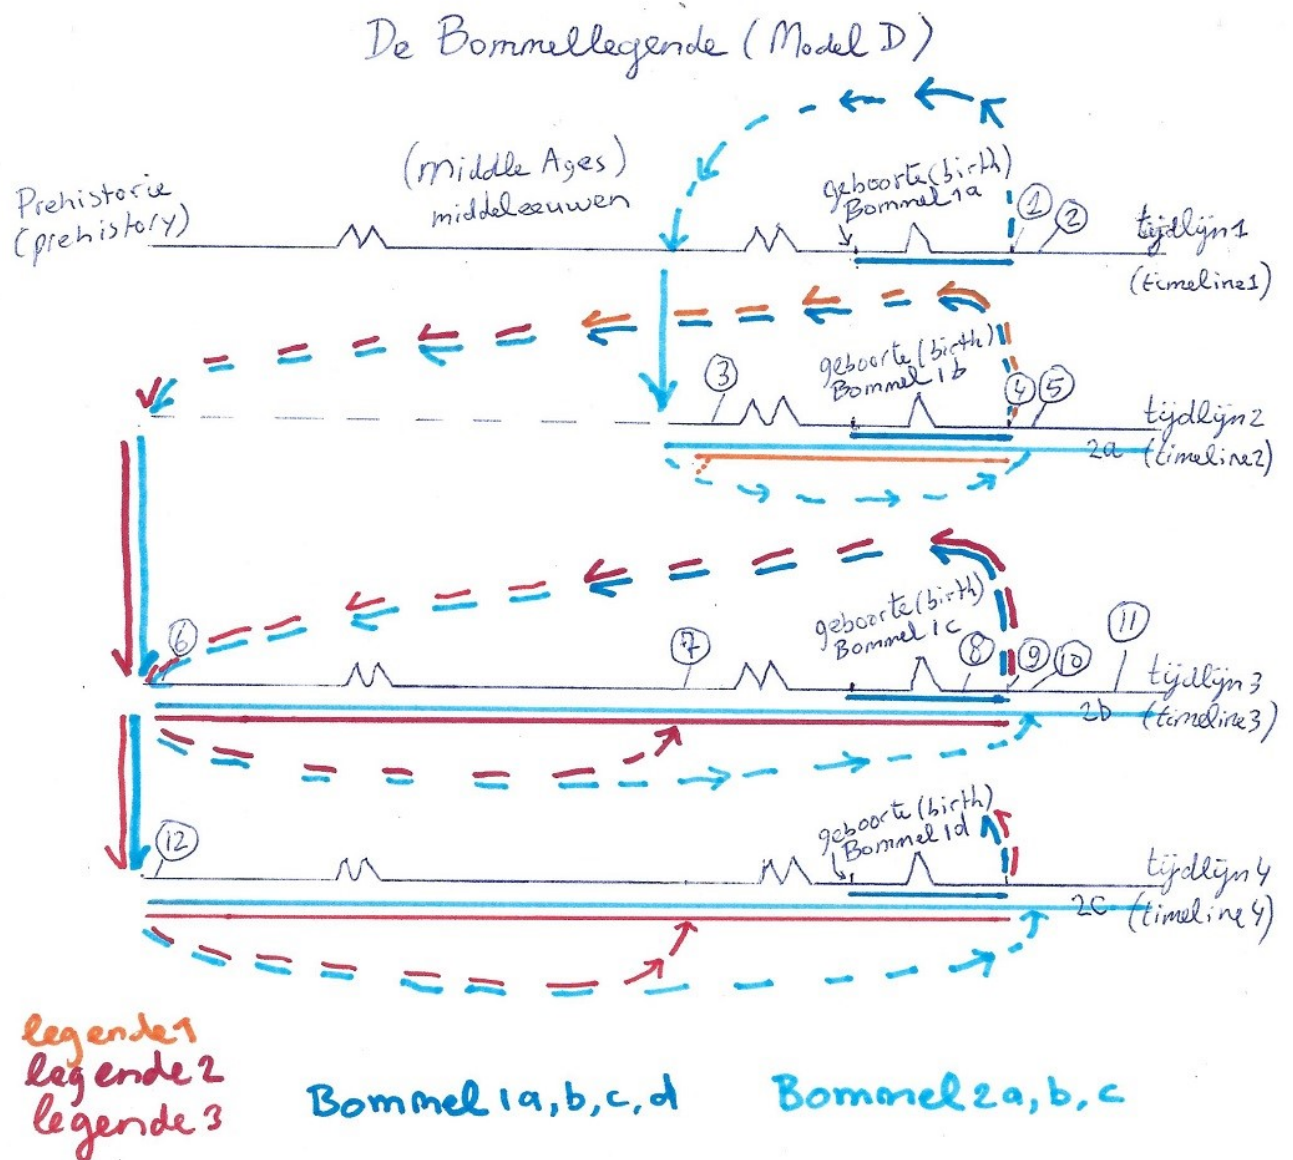 De Bommellegende (Model D)
Prehistorie
(prehistory)
(Middle Ages)
middeleeuwen
geboorte (birth)
Bommel 1a
1
2
tijdlijn 1
(timeline 1)
3
geboorte (birth)
Bommel 1b
4
5
tijdlijn 2
2a
(timeline 2)
6
7
geboorte (birth)
Bommel 1c
8
9
10
11
tijdlijn 3
2b
(timeline 3)
12
geboorte (birth)
Bommel 1d
tijdlijn 4
2c
(timeline 4)
legende 1
legende 2
legende 3
Bommel 1a, b, c, d
Bommel 2a, b, c